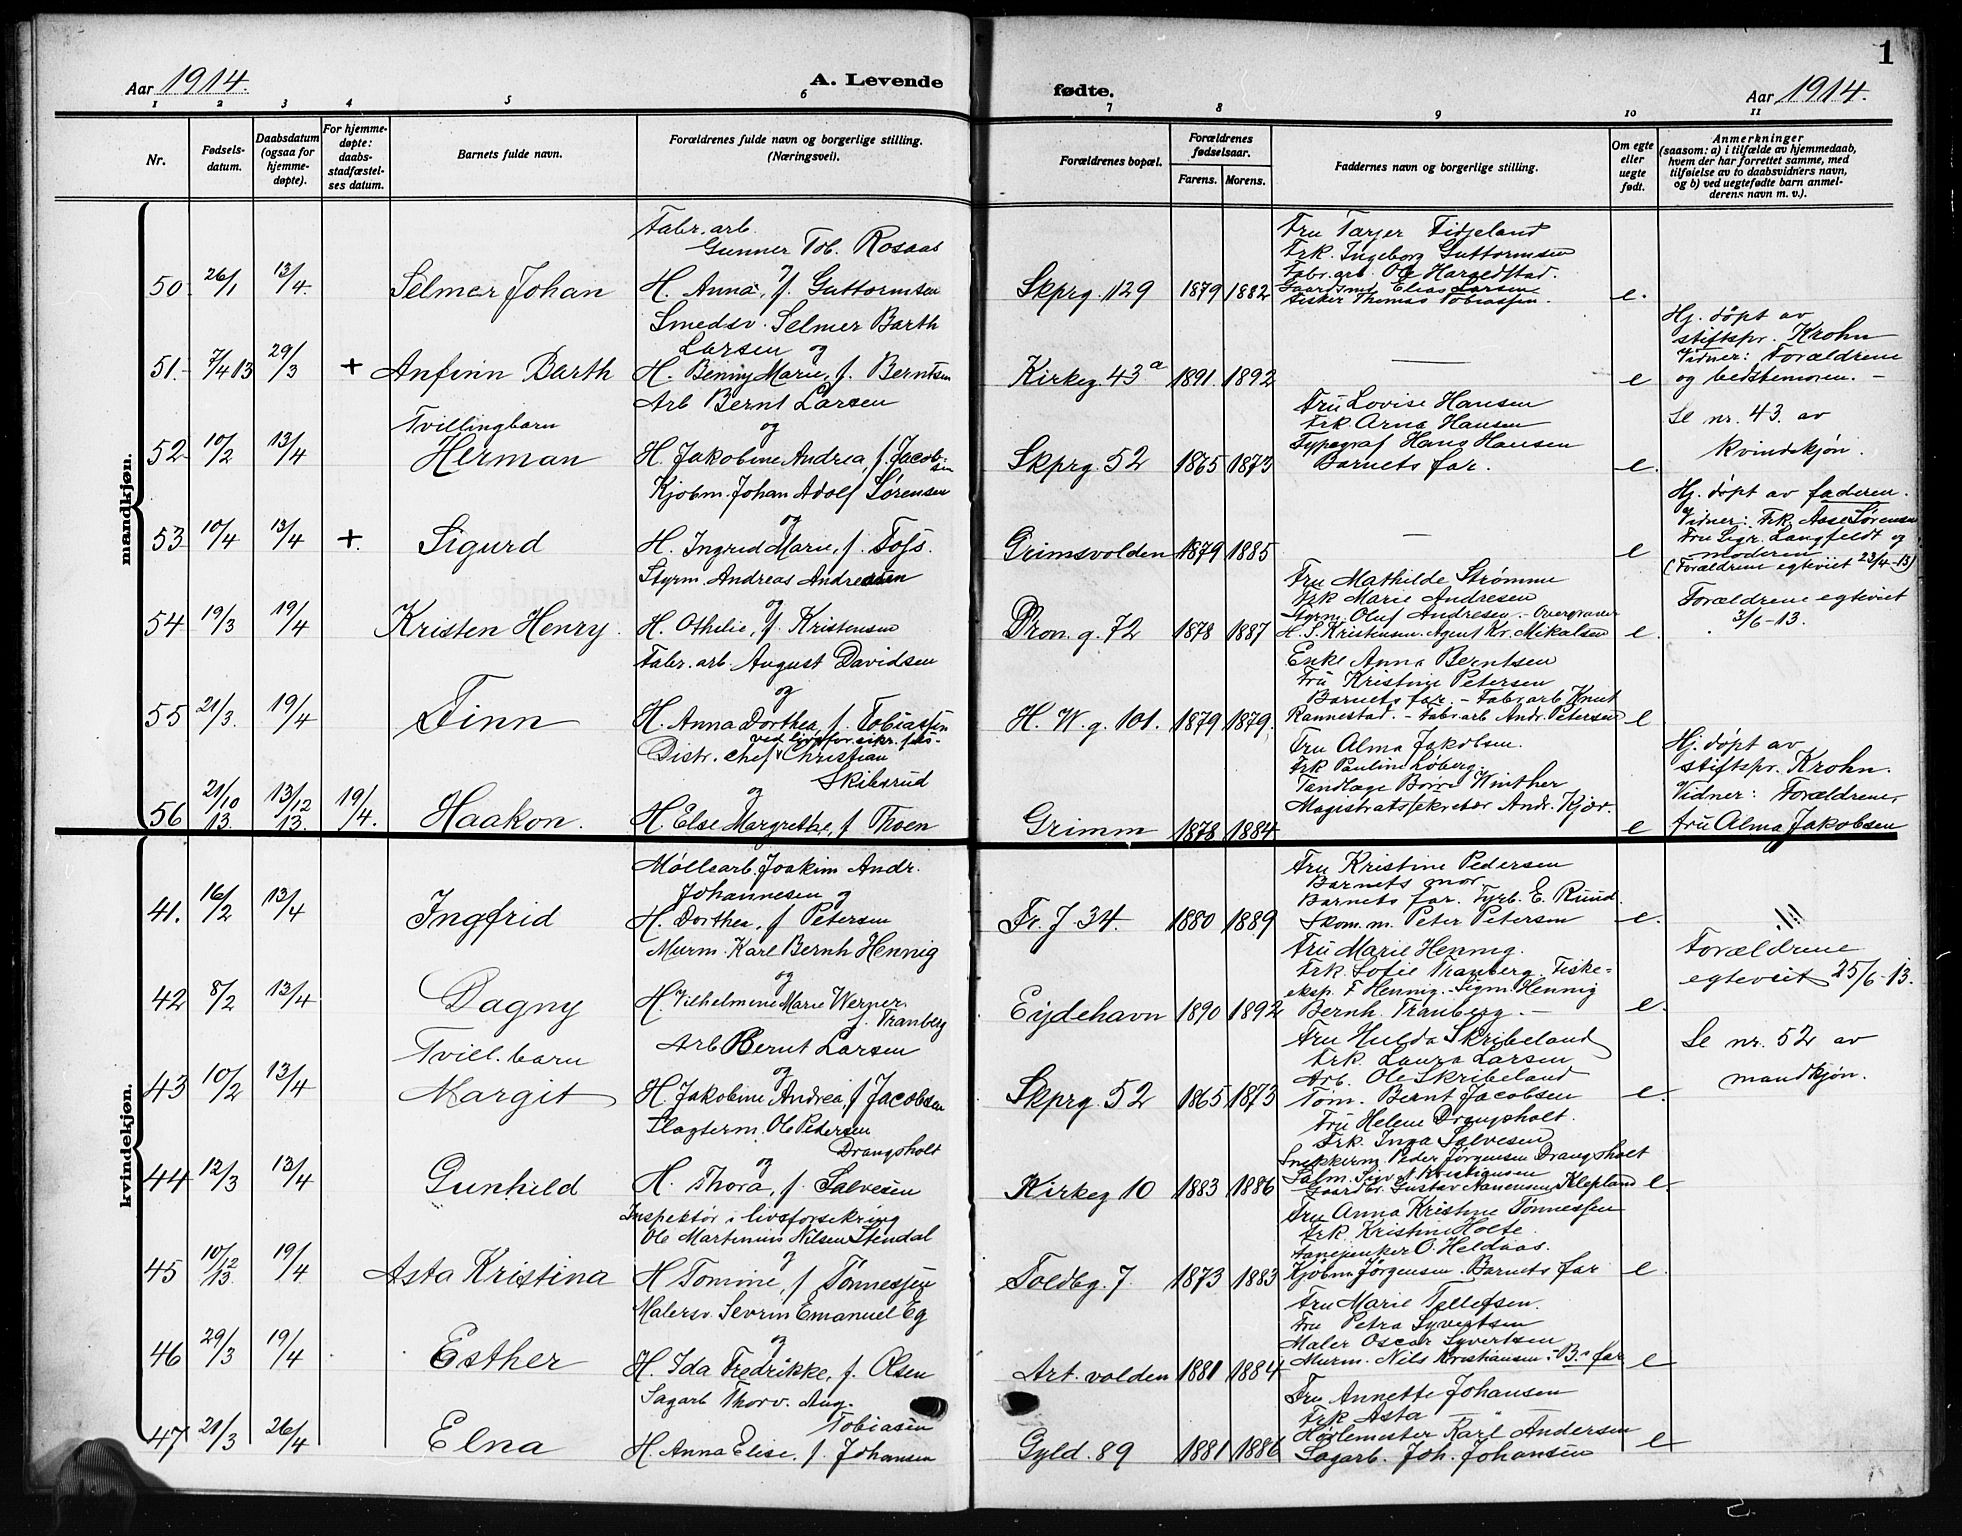 Aar 1914.
A. Levende
fødte.
Aar 1914.
1
1 2 3 4 5 6 7 8 9 10 11
Nr.
Fødsels-
datum.
Daabsdatum
(ogsaa for
hjemme-
døpte).
For hjemme-
døpte:
daabs-
stadfæstel-
ses datum.
Barnets fulde navn.
Forældrenes fulde navn og borgerlige stilling.
(Næringsvei).
Forældrenes bopæl.
Forældrenes
fødselsaar.
Farens. Morens.
Faddernes navn og borgerlige stilling.
Om egte
eller
uegte
født.
Anmerkninger
(saasom: a) i tilfælde av hjemmedaab,
hvem der har forrettet samme, med
tilføielse av to daabsvidners navn,
og b) ved uegtefødte barn anmel-
derens navn m. v.).
mandkjøn.
50 26/1 13/4 Selmer Johan
Fabr. arb.
Gunner Tob. Rosaas
og
H. Anna, f. Guttormsen
Skprg. 129 1879 1882
Fru Tarjer Fidjeland
Frk. Ingeborg Guttormsen
Fabr. arb. Ole Haregdstad.
Gaardsmd Elias Larsen
Fisker Thomas Tobiassen.
e.
51. 7/4 13 29/3 + Anfinn Barth
Smedsv. Selmer Barth
Larsen og
H. Benny Marie, f. Berntsen
Kirkeg. 43a 1891 1892
—
e
Hj. døpt av
stiftspr. Krohn
Vidner: Forældrene
og bedstemoren. –
52 10/2 13/4 Tvillingbarn
Herman
Arb Bernt Larsen
og
H. Jakobine Andrea, f. Jacob-
sen
Skprg. 52 1865 1873
Fru Lovise Hansen
Frk Arna Hansen
Typograf Hans Hansen
Barnets far.
e.
Se nr. 43. av
kvindekjøn.
53 10/4 13/4 +. Sigurd
Kjøbm. Johan Adolf Sørensen
og
H. Ingrid Marie, f. Foss.
Grimsvolden 1879 1885
—
e
Hj. døpt av faderen.
Vidner: Frk. Aase Sørensen
Fru Sigr. Langfeldt og
moderen
(Forældrene egteviet 23/4-13)
54 19/3 19/4 Kristen Henry.
Styrm. Andreas Andreassen
og
H. Othilie, f. Kristensen
Dron. g. 72 1878 1887
Fru Mathilde Strømme
Frk Marie Andresen
Styrm. Oluf Andresen. – Overgraver
H. S. Kristensen. Agent Kr. Mikalsen
e.
Forældrene egteviet
3/6-13.
55 21/3. 19/4 Finn
Fabr. arb. August Davidsen
og
H. Anna Dorthea, f. Tobiassen
H. W. g. 101. 1879 1879.
Enke Anna Berntsen
Fru Kristine Petersen
Barnets far. – Fabr. arb Knut
Rannestad. – Fabr. arb Andr. Petersen
e
56 21/10 13. 13/12 13. 19/4. Haakon.
ved livsforsikr. sels-
Distr. chef Christian
Skibsrud
og
H. Else Margrethe, f Thoen
Grimm 1878 1884
Fru Alma Jakobsen.
Frk Pauline Løberg.
Tandlæge Børre Winther
Magistratssekretær Andr. Kjær.
e
Hj. døpt av
stiftspr. Krohn.
Vidner: Forældrene,
fru Alma Jakobsen
kvindekjøn.
41. 16/2 13/4 Ingfrid
Møllsarb. Joakim Andr.
Johannesen og
H. Dorthea, f Petersen
Fr. J 34. 1880 1889
Fru Kristine Pedersen
Barnets mor
Barnets far. Fyrb. E. Ruud.
Skom. m. Peter Petersen
e.
42 8/2 13/4 Dagny
Murm. Karl Bernh Hennig
og
H. Vilhelmine Marie Werner,
f. Tranberg
Eydehavn 1890 1892
Fru Marie Hennig.
Frk. Sofie Tranberg. Fiske-
eksp. F Hennig. – Sigm. Hennig
Bernh. Tranberg. –
e.
Forældrene
egteviet 25/6-13.
43 10/2 13/4 Tvill. barn
Margit
Arb Bernt Larsen
og
H. Jakobine Andrea, f Jacobsen
Skprg 52 1865 1873
Fru Hulda Skribeland
Frk. Laura Larsen
Arb. Ole Skribeland
Tøm. Bernt Jacobsen
e.
Se nr. 52 av
mandkjøn.
44 12/3 13/4 Gunhild
Slagterm. Ole Pedersen
Drangsholt
og
H. Thora, f. Salvesen
Kirkeg 10 1883 1886
Fru Helene Drangsholt.
Frk. Inga Salvesen
Snekkerm. Peder Jørgensen Drangsholt
Salm. Sivert Kristiansen
Gaardbr. Gustav Aanensen Klepland
e.
45 10/12 13. 19/4 Asta Kristina
Inspektør i livsforsikring
Ole Martinius Nilsen Stendal
og
H Tomine, f Tønnessen
Toldbg. 7. 1873 1883
Fru Anna Kristine Tønnessen
Frk. Kristine Holte.
Fanejunker O. Heldaas.
Kjøbm. Jørgensen. Barnets far
e.
46 29/3 19/4 Esther
Malersv. Sevrin Emanuel Eg
og
H. Ida Fredrikke, f. Olsen
Art. volden 1881 1884
Fru Marie Tellefsen.
Fru Petra Syvertsen
Maler Oscar Syvertsen
Murm. Nils Kristiansen. – B.s far
e
47 21/3 26/4 Elna
Sagarb Thorv. Aug.
Tobiasen
H. Anna Elise. f. Johansen
Gyld. 89 1881 1886
Fru Annette Johansen
Frk Asta —
Høvlemester Karl Andersen
Sagarb. Joh. Johansen
e